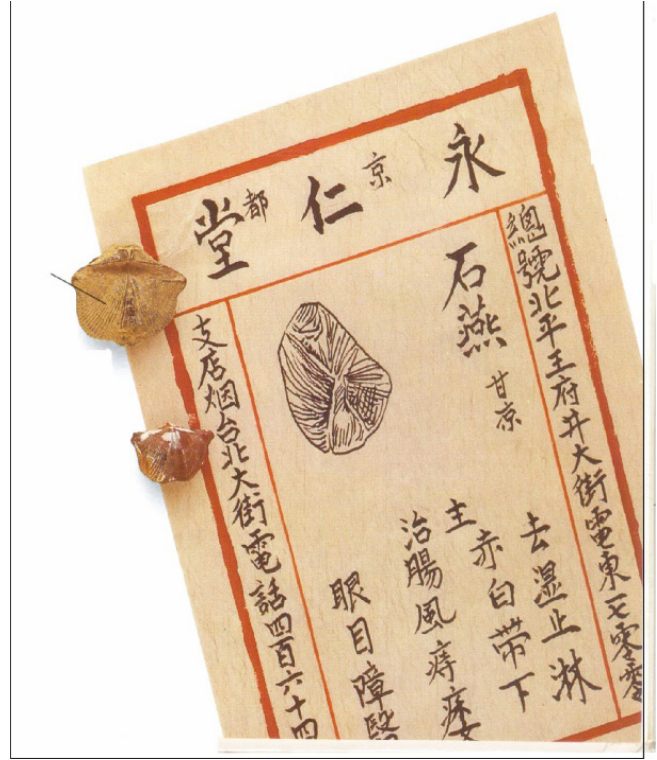 永仁堂
京都
總號北平王府井大街電東一七零零
石燕
甘京
去濕止淋
主赤白帶下
治腸風痔
眼目障
支店烟台北大街電話四百六十四